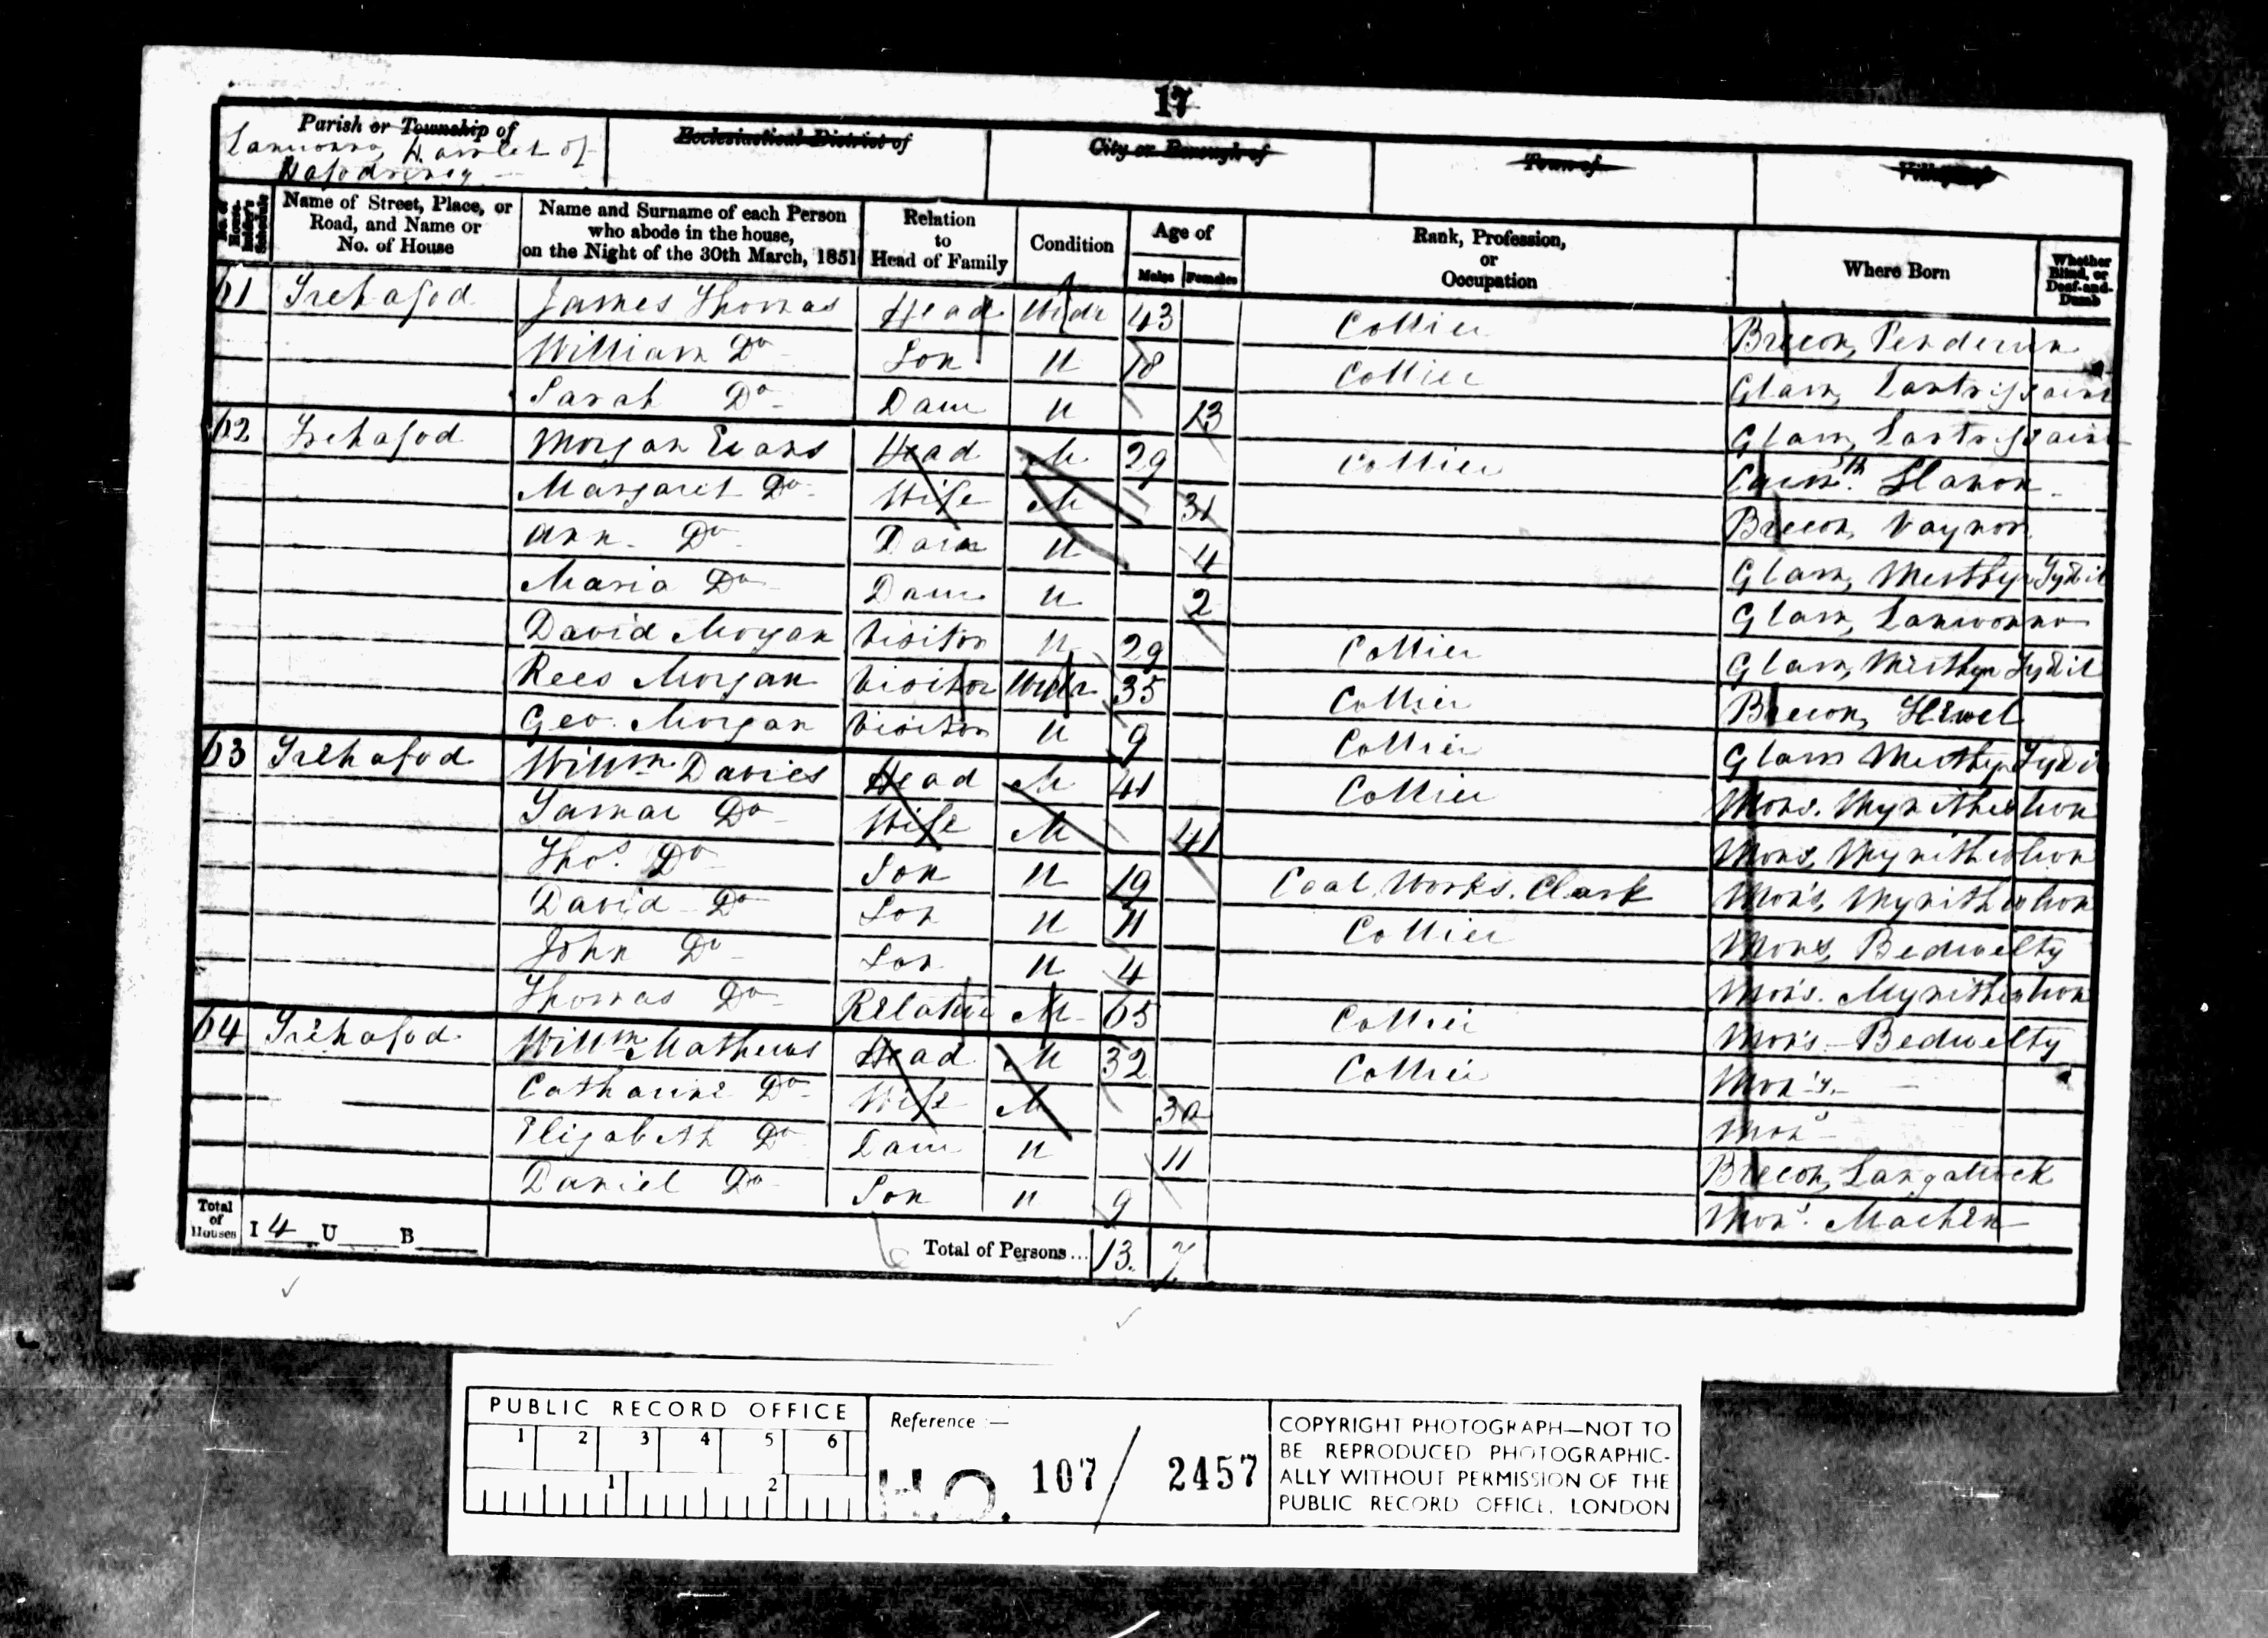 17
Parish or Township of
Lanwonno, Hamlet of
Ecclesiastical District of
City or Borough of
Town of
No. of House-holder's Schedule
Name of Street, Place, or Road, and Name or No. of House
Name and Surname of each Person who abode in the house, on the Night of the 30th March, 1851
Relation to Head of Family
Condition
Age of
Males Females
Rank, Profession, or Occupation
Where Born
Whether Blind, or Deaf-and-Dumb
61 Trehafod James Thomas Head Widr 43 Collier Brecon, Penderen
William Do Son U 18 Collier Glam, Lantrissaint
Sarah Do Daur U 13 Glam, Lantrissaint
62 Trehafod Morgan Evans Head M 29 Collier Carmth. Llanon
Margaret Do Wife M 31 Brecon, Vaynor
Ann Do Daur U 4 Glam, Merthyr Tydil
Maria Do Daur U 2 Glam, Lanwonno
David Morgan Visitor U 29 Collier Glam, Merthyr Tydil
Rees Morgan Visitor Widr 35 Collier Brecon,
Geo. Morgan Visitor U 9 Collier Glam Merthyr Tydil
63 Trehafod Willm Davies Head M 41 Collier Mons. Mynithisloion
Tamar Do Wife M 41 Mons, Mynithisloion
Thos. Do Son U 19 Coal Works. Clark Mons, Mynithisloion
David Do Son U 11 Collier Mons, Bedwelty
John Do Son U 4 Mons. Mynithisloion
Thomas Do Relative M 65 Collier Mons Bedwelty
64 Trehafod Willm Mathews Head M 32 Collier Mons.
Catharine Do Wife M 30 Mons
Elizabeth Do Daur U 11 Brecon, Langattock
Daniel Do Son U 9 Mons. Machen
Total of Houses I 4 U B
Total of Persons... 13. 7
PUBLIC RECORD OFFICE
1 2 3 4 5 6
1 2
Reference :—
H.O. 107 / 2457
COPYRIGHT PHOTOGRAPH—NOT TO
BE REPRODUCED PHOTOGRAPHIC-
ALLY WITHOUT PERMISSION OF THE
PUBLIC RECORD OFFICE, LONDON